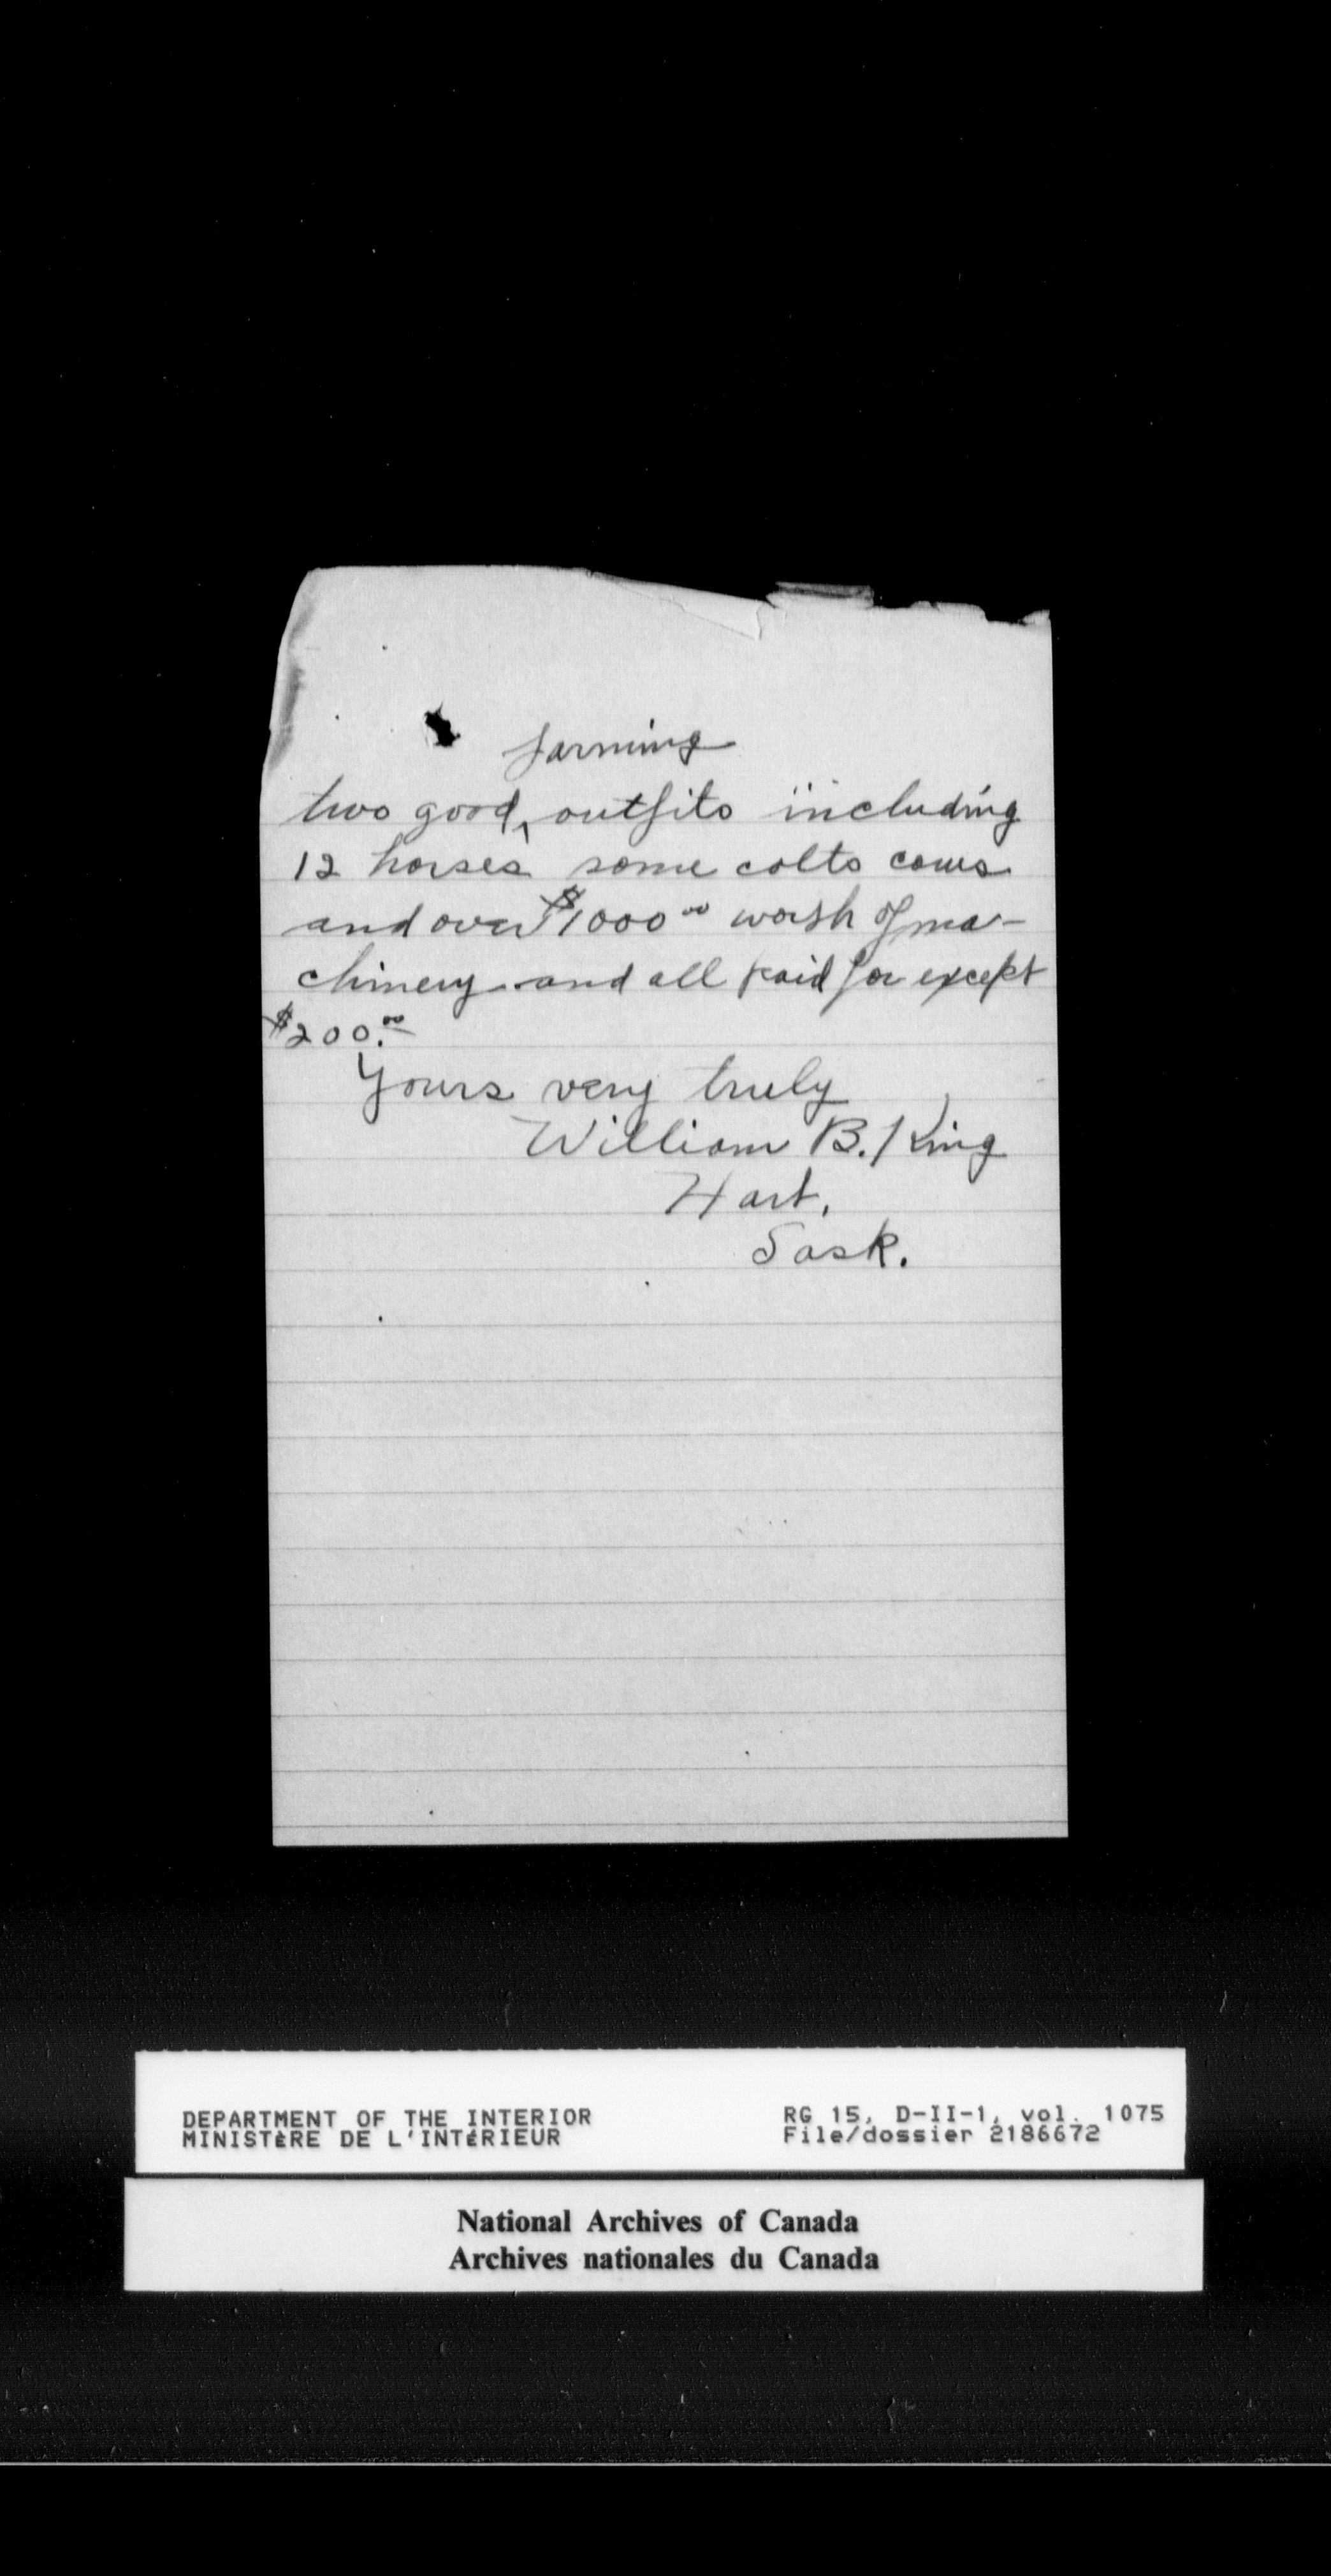 farming
two good, outfits including
12 horses some colts cows
and over $1000.00 worth of ma-
chinery and all paid for except
$200.00
Yours very truly
William B. King
Hart,
Sask.
DEPARTMENT OF THE INTERIOR
MINISTÈRE DE L'INTÉRIEUR
RG 15, D-II-1, vol. 1075
File/dossier 2186672
National Archives of Canada
Archives nationales du Canada